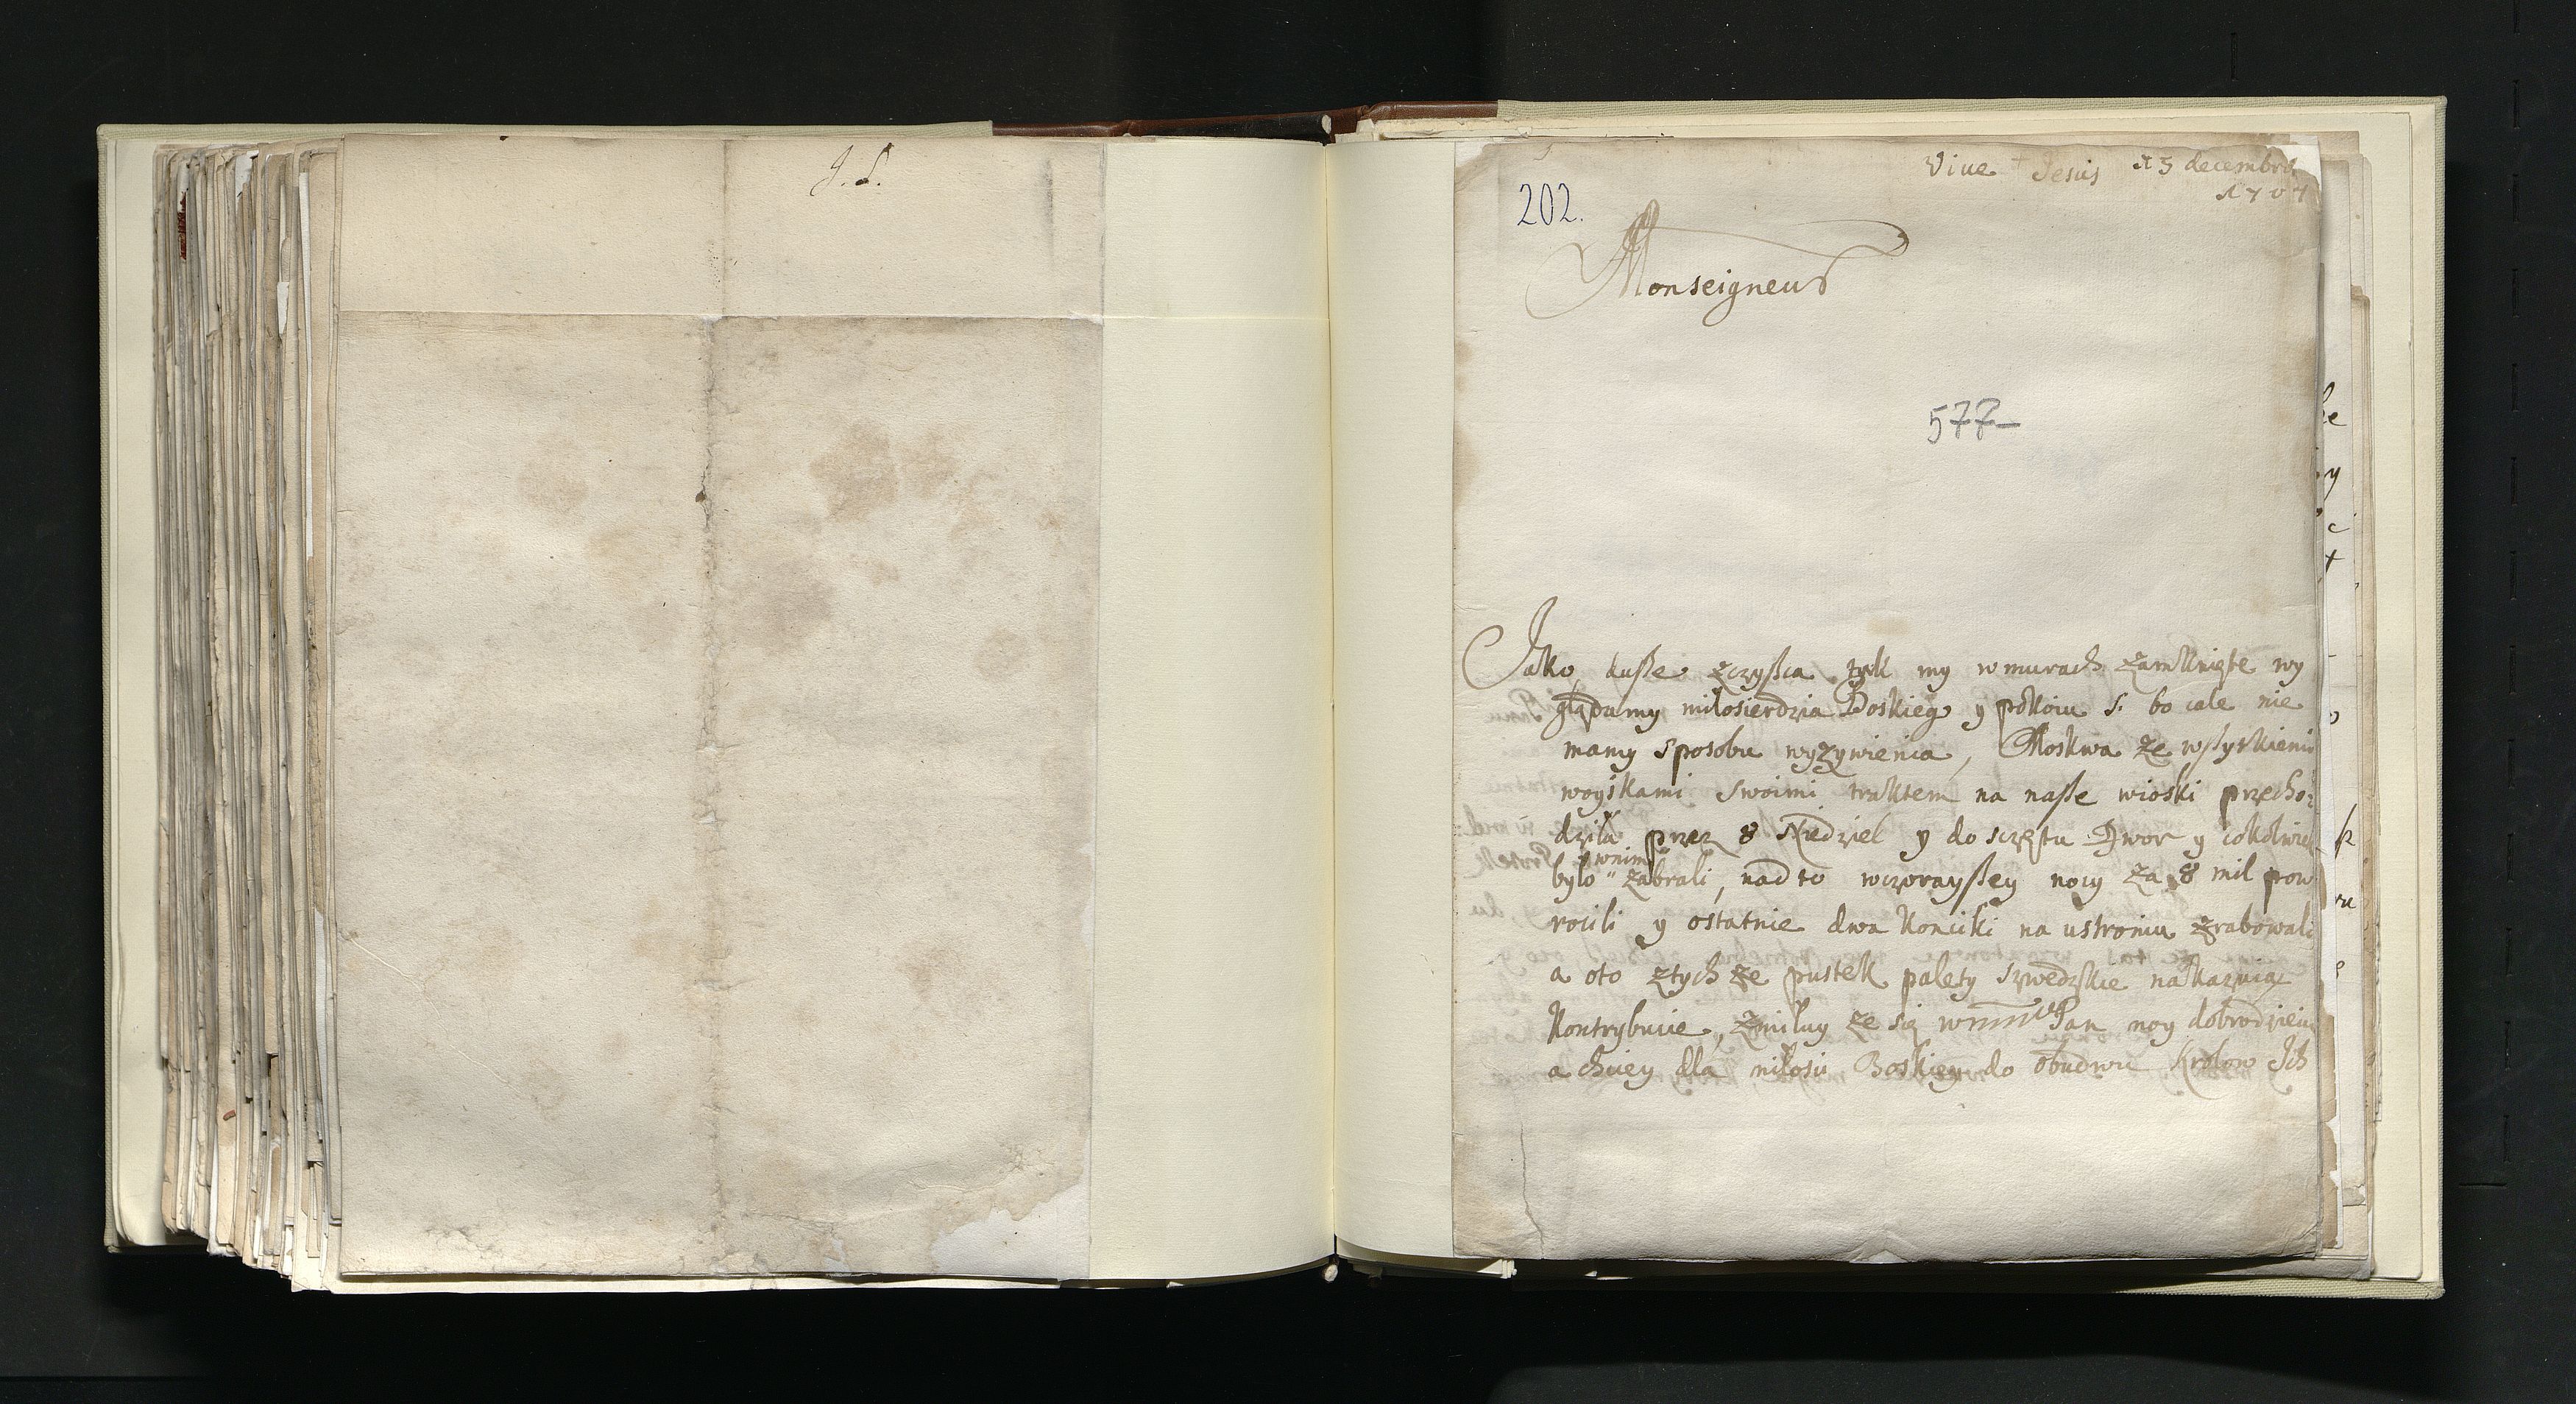 J. L.
Viue + Jesus 15 decembra
1707
202.
Monseigneur
577-
Jako dusse zczyssca tak my w murach zamknięte wy
glądamy miłosierdzia Boskieg y pokoiu S. bo cale nie
mamy sposobu wyzywienia, Moskwa ze wssytkiemi
woyskami swoimi traktem na nasse wioski przecho:
dziła przez 8 Niedziel y do sczętu Dwor y cokolwiek
było w nim zabrali, nad to wczoraysszey nocy za 8 mil pow
rocili y ostatnie dwa koniki na ustroniu zrabowali
a oto z tych ze pustek palety szwedzkie nakazuią
Kontrybucie, zmiłuy ze się Pan moy dobrodzieiu
a chciey dla miłosci Boskiey do obudwu Krolow Ich